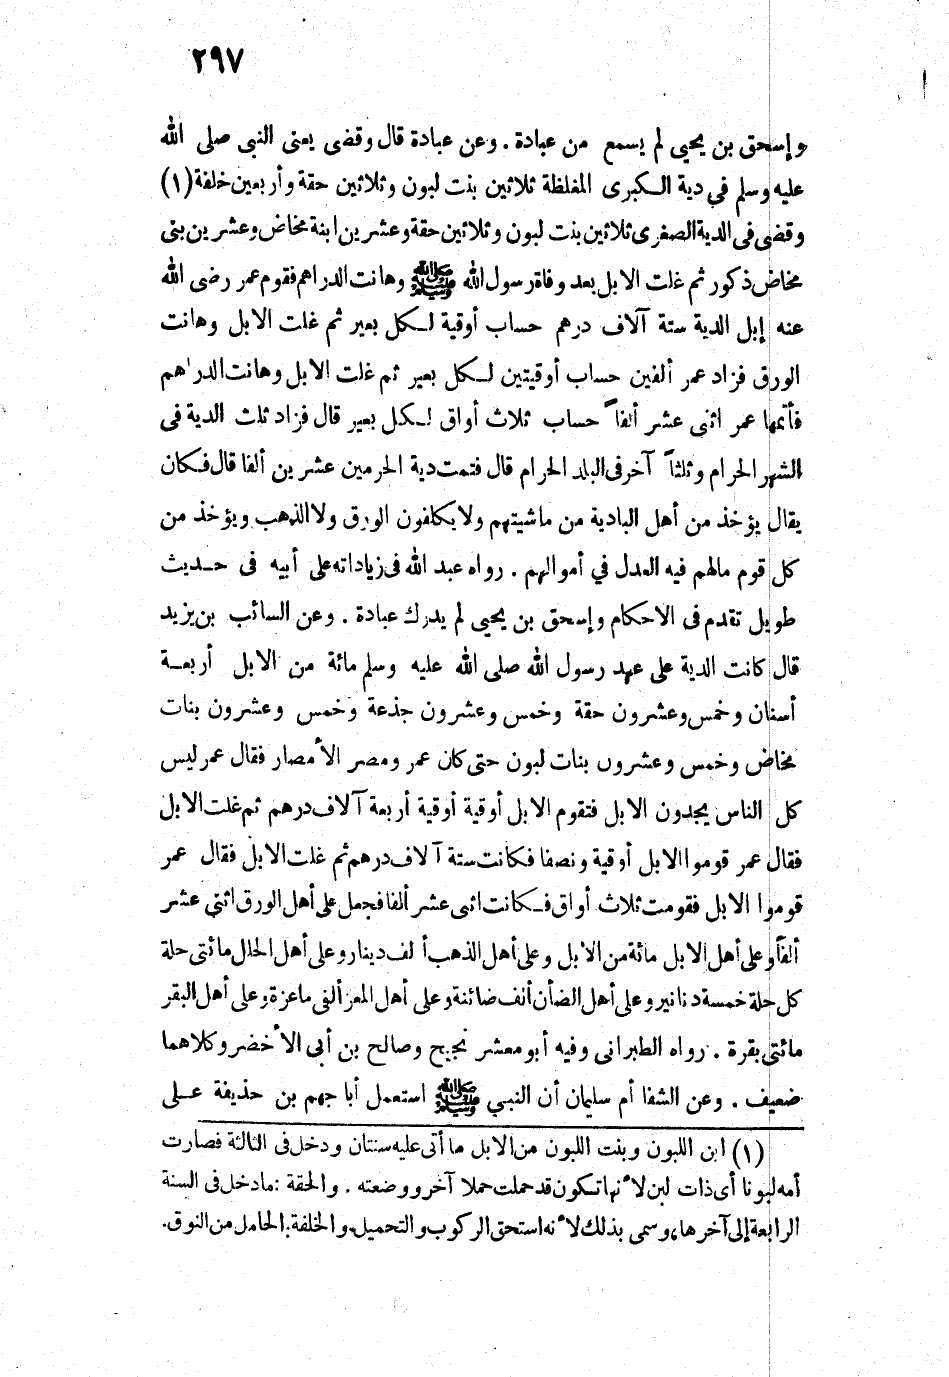 ٢٩٧
وإسحق بن يحيى لم يسمع من عبادة . وعن عبادة قال وقضى يعنى النبى صلى الله
عليه وسلم في دية الكبرى المغلظة ثلاثين بنت لبون وثلاثين حقة وأربعين خلفة (١)
وقضى فى الدية الصغرى ثلاثين بنت لبون وثلاثين حقة وعشرين ابنة مخاض وعشرين بنى
مخاض ذكور ثم غلت الابل بعد وفاة رسول الله ﷺ وهانت الدراهم فقوم عمر رضى الله
عنه إبل الدية ستة آلاف درهم حساب أوقية لكل بعير ثم غلت الابل وهانت
الورق فزاد عمر ألفين حساب أوقيتين لكل بعير ثم غلت الابل وهانت الدراهم
فأتمها عمر اثنى عشر ألفاً حساب ثلاث أواق لكل بعير قال فزاد ثلث الدية فى
الشهر الحرام وثلثاً آخر فى البلد الحرام قال فتمت دية الحرمين عشرين ألفا قال فكان
يقال يؤخذ من أهل البادية من ماشيتهم ولا يكلفون الورق ولا الذهب ويؤخذ من
كل قوم مالهم فيه العدل في أموالهم . رواه عبد الله فى زياداته على أبيه فى حديث
طويل تقدم فى الاحكام وإسحق بن يحيى لم يدرك عبادة . وعن السائب بن يزيد
قال كانت الدية على عهد رسول الله صلى الله عليه وسلم مائة من الابل أربعة
أسنان وخمس وعشرون حقة وخمس وعشرون جذعة وخمس وعشرون بنات
مخاض وخمس وعشرون بنات لبون حتى كان عمر ومصر الأمصار فقال عمر ليس
كل الناس يجدون الابل فتقوم الابل أوقية أوقية أربعة آلاف درهم ثم غلت الابل
فقال عمر قوموا الابل أوقية ونصفا فكانت ستة آلاف درهم ثم غلت الابل فقال عمر
قوموا الابل فقومت ثلاث أواق فكانت اثنى عشر ألفا فجعل على أهل الورق اثنى عشر
ألفاً وعلى أهل الابل مائة من الابل وعلى أهل الذهب ألف دينار وعلى أهل الحلل مائتى حلة
كل حلة خمسة دنانير وعلى أهل الضأن ألف ضائنة وعلى أهل المعز ألفى ماعزة وعلى أهل البقر
مائتى بقرة . رواه الطبرانى وفيه أبو معشر نجيح وصالح بن أبى الأخضر وكلاهما
ضعيف . وعن الشفا أم سليمان أن النبي ﷺ استعمل أبا جهم بن حذيفة على
(١) ابن اللبون وبنت اللبون من الابل ما أتى عليه سنتان ودخل فى الثالثة فصارت
أمه لبونا أى ذات لبن لأنها تكون قد حملت حملا آخر ووضعته . والحقة : ما دخل فى السنة
الرابعة إلى آخرها، وسمى بذلك لأنه استحق الركوب والتحميل. والخلفة: الحامل من النوق.